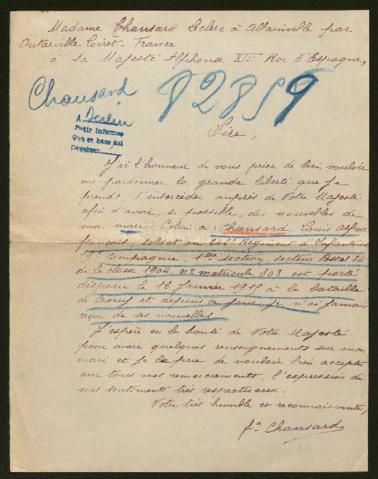 Madame Chansard Leclerc à Allainville par
Outarville Loiret. France
à sa Majesté Alphonse XIII Roi d'Espagne,
Chansard
82859
A
Pedir informes
que se hace aqui
Sire,
J'ai l'honneur de vous prier de bien vouloir
me pardonner la grande liberté que je
prends, d'intercéder auprès de Votre Majesté
afin d'avoir, si possible, des nouvelles de
mon mari. Celui-ci Chansard Louis
françois, soldat au Régiment d'Infanterie
Compagnie 1ère section, secteur Postal
de la classe 1904, n° matricule 303 est porté
disparu le 12 Janvier 1915 à la bataille
de Crouy et depuis ce jour je n'ai jamais
reçu de ses nouvelles.
J'espère en la bonté de Votre Majesté
pour avoir quelques renseignements sur mon
mari et je la prie de vouloir bien accepter
avec tous mes remerciements l'expression de
mes sentiments très respectueux.
Votre très humble et reconnaissante,
fe Chansard